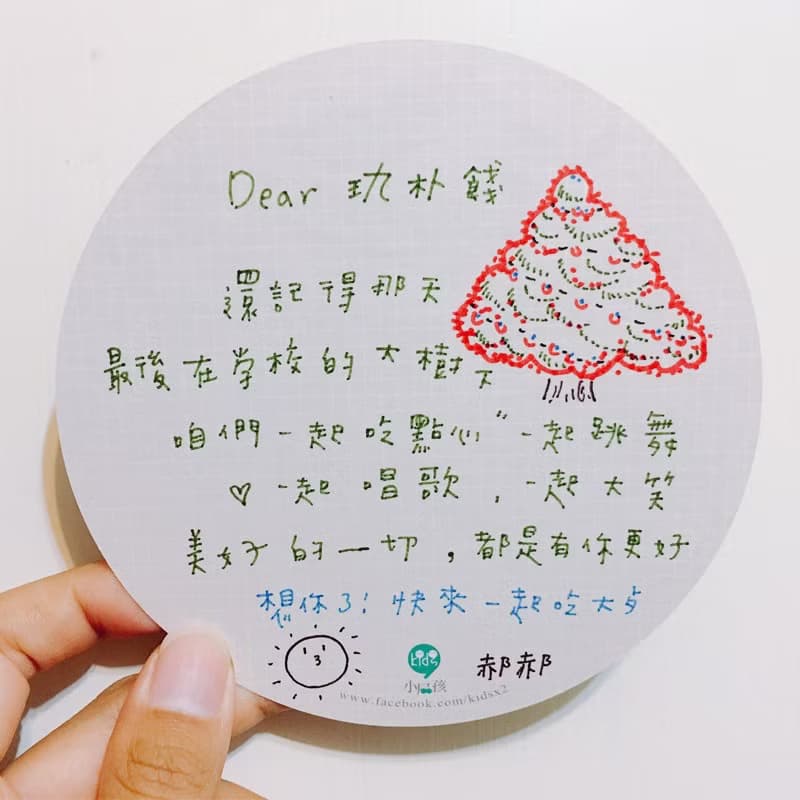 Dear 玖朴餞
還記得那天
最後在学校的大樹下
咱們一起吃點心"一起跳舞
♡一起唱歌,一起大笑
美好的一切,都是有你更好
想你了!快來一起吃大歺
kids
小口孩
郝郝
www.facebook.com/kidsx2